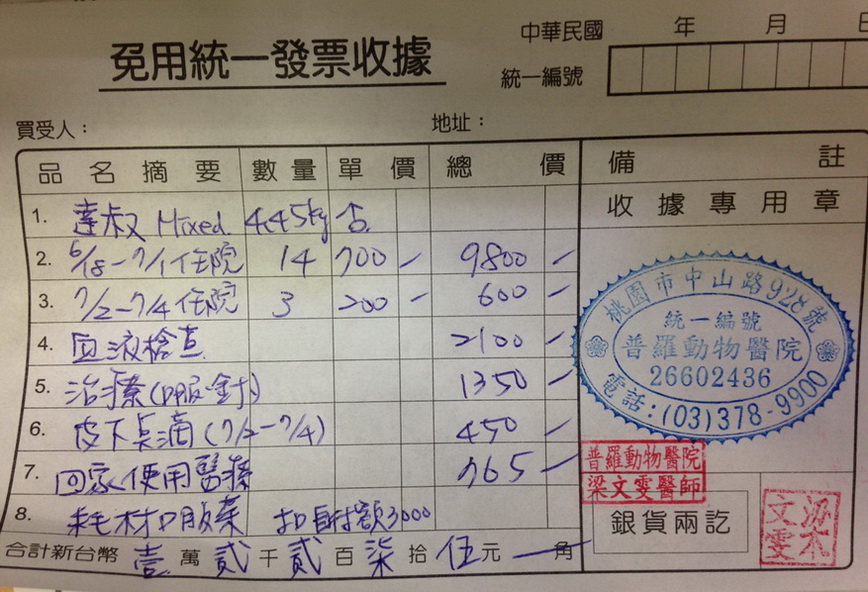 中華民國 年 月 日
免用統一發票收據
統一編號
買受人： 地址：
品名摘要 數量 單價 總價 備註
收據專用章
1. 達叔 Mixed 4.45kg
2. 6/18-7/1住院 14 700- 9800-
3. 7/2-7/4住院 3 200- 600-
4. 血液檢查 2100-
5. 治療(口服.針) 1350-
6. 皮下點滴(7/2-7/4) 450-
7. 回家使用醫療 765-
8. 耗材口服藥 扣 額3000
合計新台幣 壹萬貳仟貳百柒拾伍元 角
桃園市中山路928號
統一編號
普羅動物醫院
26602436
電話:(03)378-9900
普羅動物醫院
梁文雯醫師
銀貨兩訖
梁文雯